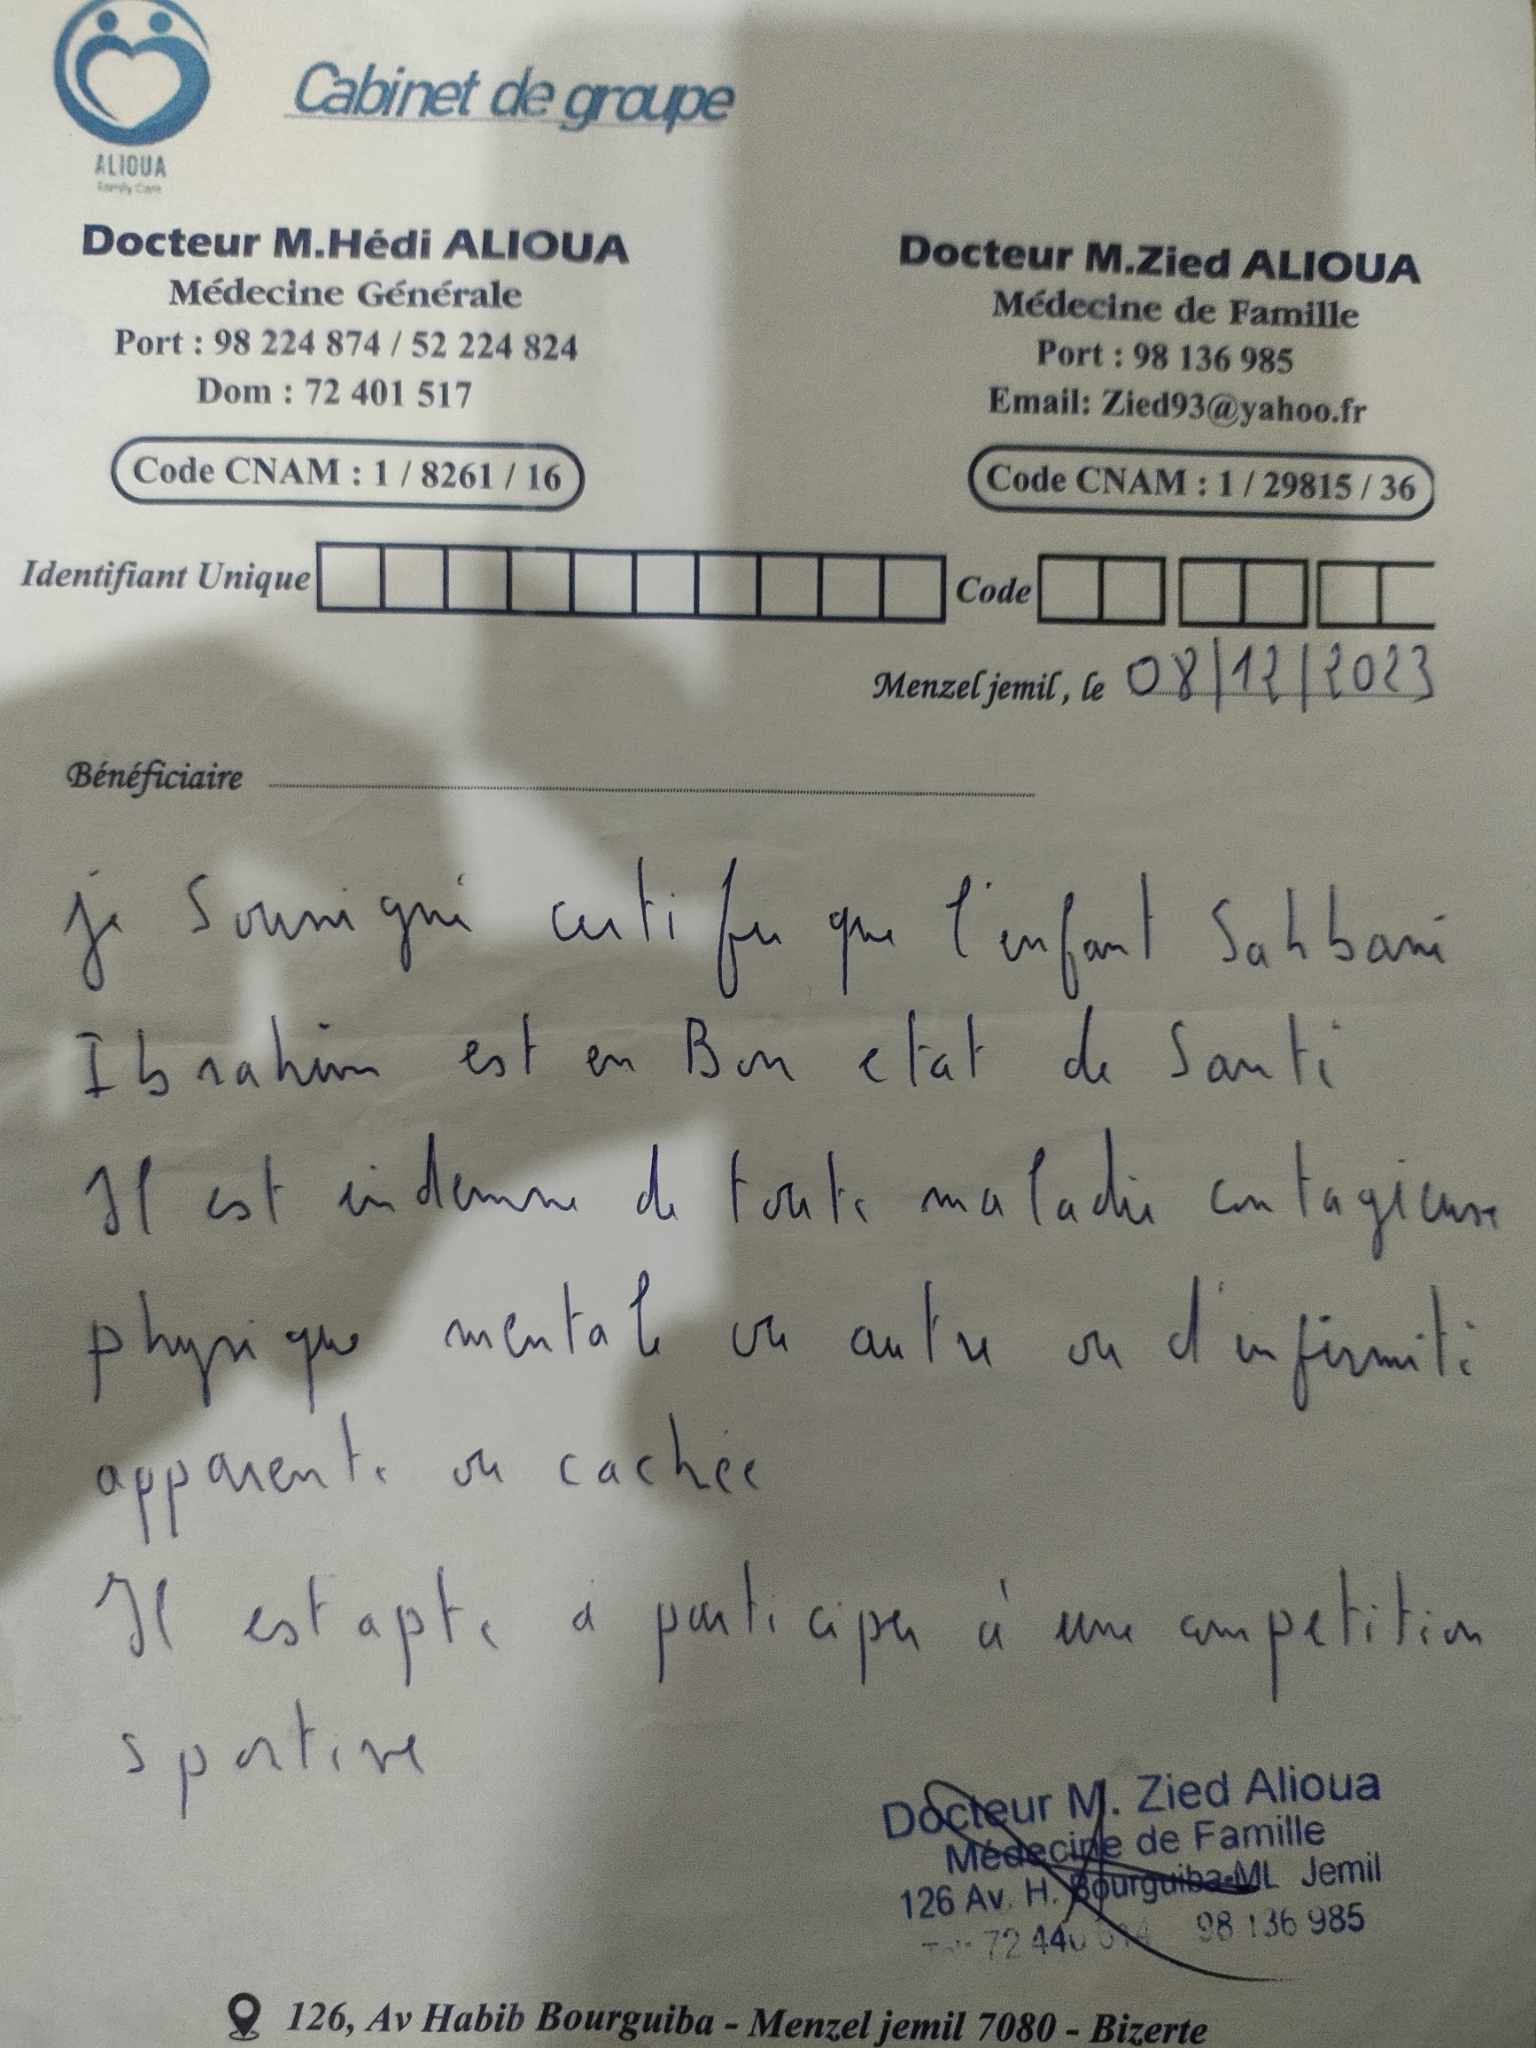 Cabinet de groupe
ALIOUA
Family Care
Docteur M.Hédi ALIOUA
Médecine Générale
Port : 98 224 874 / 52 224 824
Dom : 72 401 517
Code CNAM : 1 / 8261 / 16
Docteur M.Zied ALIOUA
Médecine de Famille
Port : 98 136 985
Email: Zied93@yahoo.fr
Code CNAM : 1 / 29815 / 36
Identifiant Unique Code
Menzel jemil, le 08/12/2023
Bénéficiaire
je Soussigné certifie que l'enfant Sahbani
Ibrahim est en Bon etat de Santé
Il est indemne de toute maladie contagieuse
physique mentale ou autre ou d'infirmité
apparente ou cachée
Il est apte à participer à une competition
sportive
Docteur M. Zied Alioua
Médecine de Famille
126 Av. H. Bourguiba-ML Jemil
98 136 985
126, Av Habib Bourguiba - Menzel jemil 7080 - Bizerte